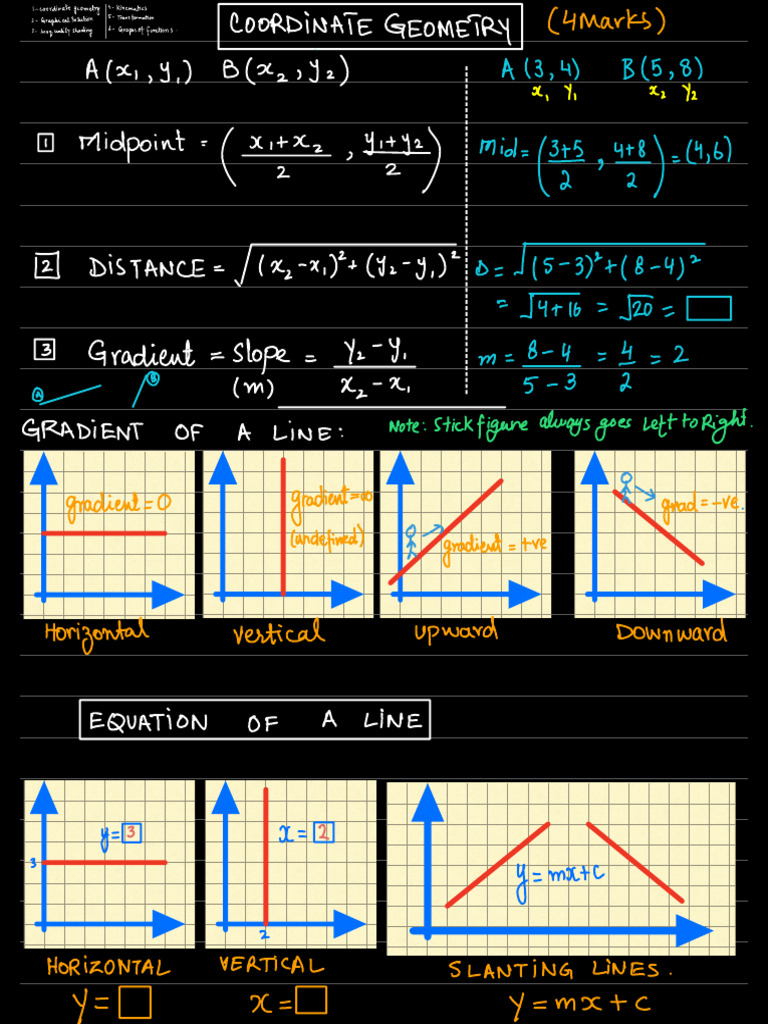 1-coordinate geometry
2-Graphical Solution
3-Inequality shading
4-Kinematics
5-Transformation
6-Graphs of functions.
COORDINATE GEOMETRY (4Marks)
A(x₁, y₁) B(x₂, y₂)
A(3,4) B(5,8)
x₁ y₁ x₂ y₂
1 Midpoint = ( (x₁+x₂)/2 , (y₁+y₂)/2 )
Mid = ( (3+5)/2 , (4+8)/2 ) = (4,6)
2 DISTANCE = √((x₂-x₁)²+(y₂-y₁)²)
D = √((5-3)²+(8-4)²)
= √(4+16) = √20 =
3 Gradient = Slope = (y₂-y₁)/(x₂-x₁)
(m)
m = (8-4)/(5-3) = 4/2 = 2
A B
GRADIENT OF A LINE:
Note: Stick figure always goes Left to Right.
gradient=0
Horizontal
gradient=∞
(undefined)
Vertical
gradient=+ve
upward
grad=-ve.
DOWNWARD
EQUATION OF A LINE
y=3
3
HORIZONTAL
y=
x=2
2
VERTICAL
x=
y=mx+c
SLANTING LINES.
y=mx+c